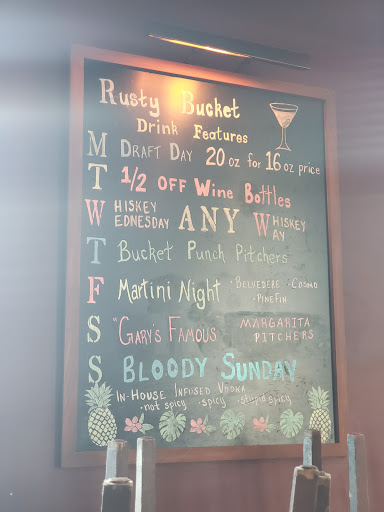 Rusty Bucket
Drink Features
M DRAFT DAY 20 oz for 16 oz price
T 1/2 OFF Wine Bottles
W HISKEY EDNESDAY ANY WHISKEY WAY
T Bucket Punch Pitchers
F Martini Night · BELVEDERE · COSMO · PINEFIN
S "GARY'S FAMOUS MARGARITA PITCHERS
S BLOODY SUNDAY
IN-HOUSE INFUSED VODKA
· not spicy · spicy · stupid spicy